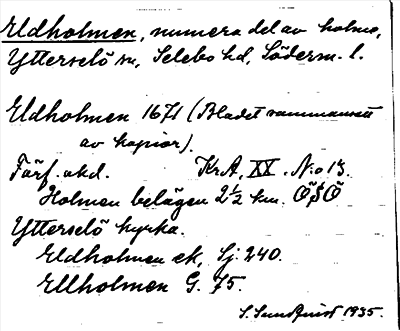 Eldholmen, numera del av holme,
Ytterselö sn, Selebo hd, Söderm. l.
Eldholmen 1671 (Bladet sammansatt
av kopior).
Färf. okd. Kr.A. XX. N:o 13.
Holmen belägen 2½ km. ÖSÖ
Ytterselö kyrka.
Eldholmen ek, Sj. 240.
Ellholmen G. 75.
S. Sundquist 1935.